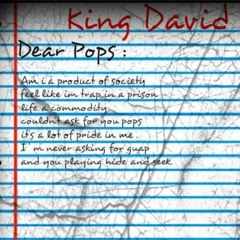 King David
Dear Pops :
Am i a product of society
feel like im trap in a prison
life a commodity
couldnt ask for you pops
it's a lot of pride in me .
I ' m never asking for guap
and you playing hide and seek